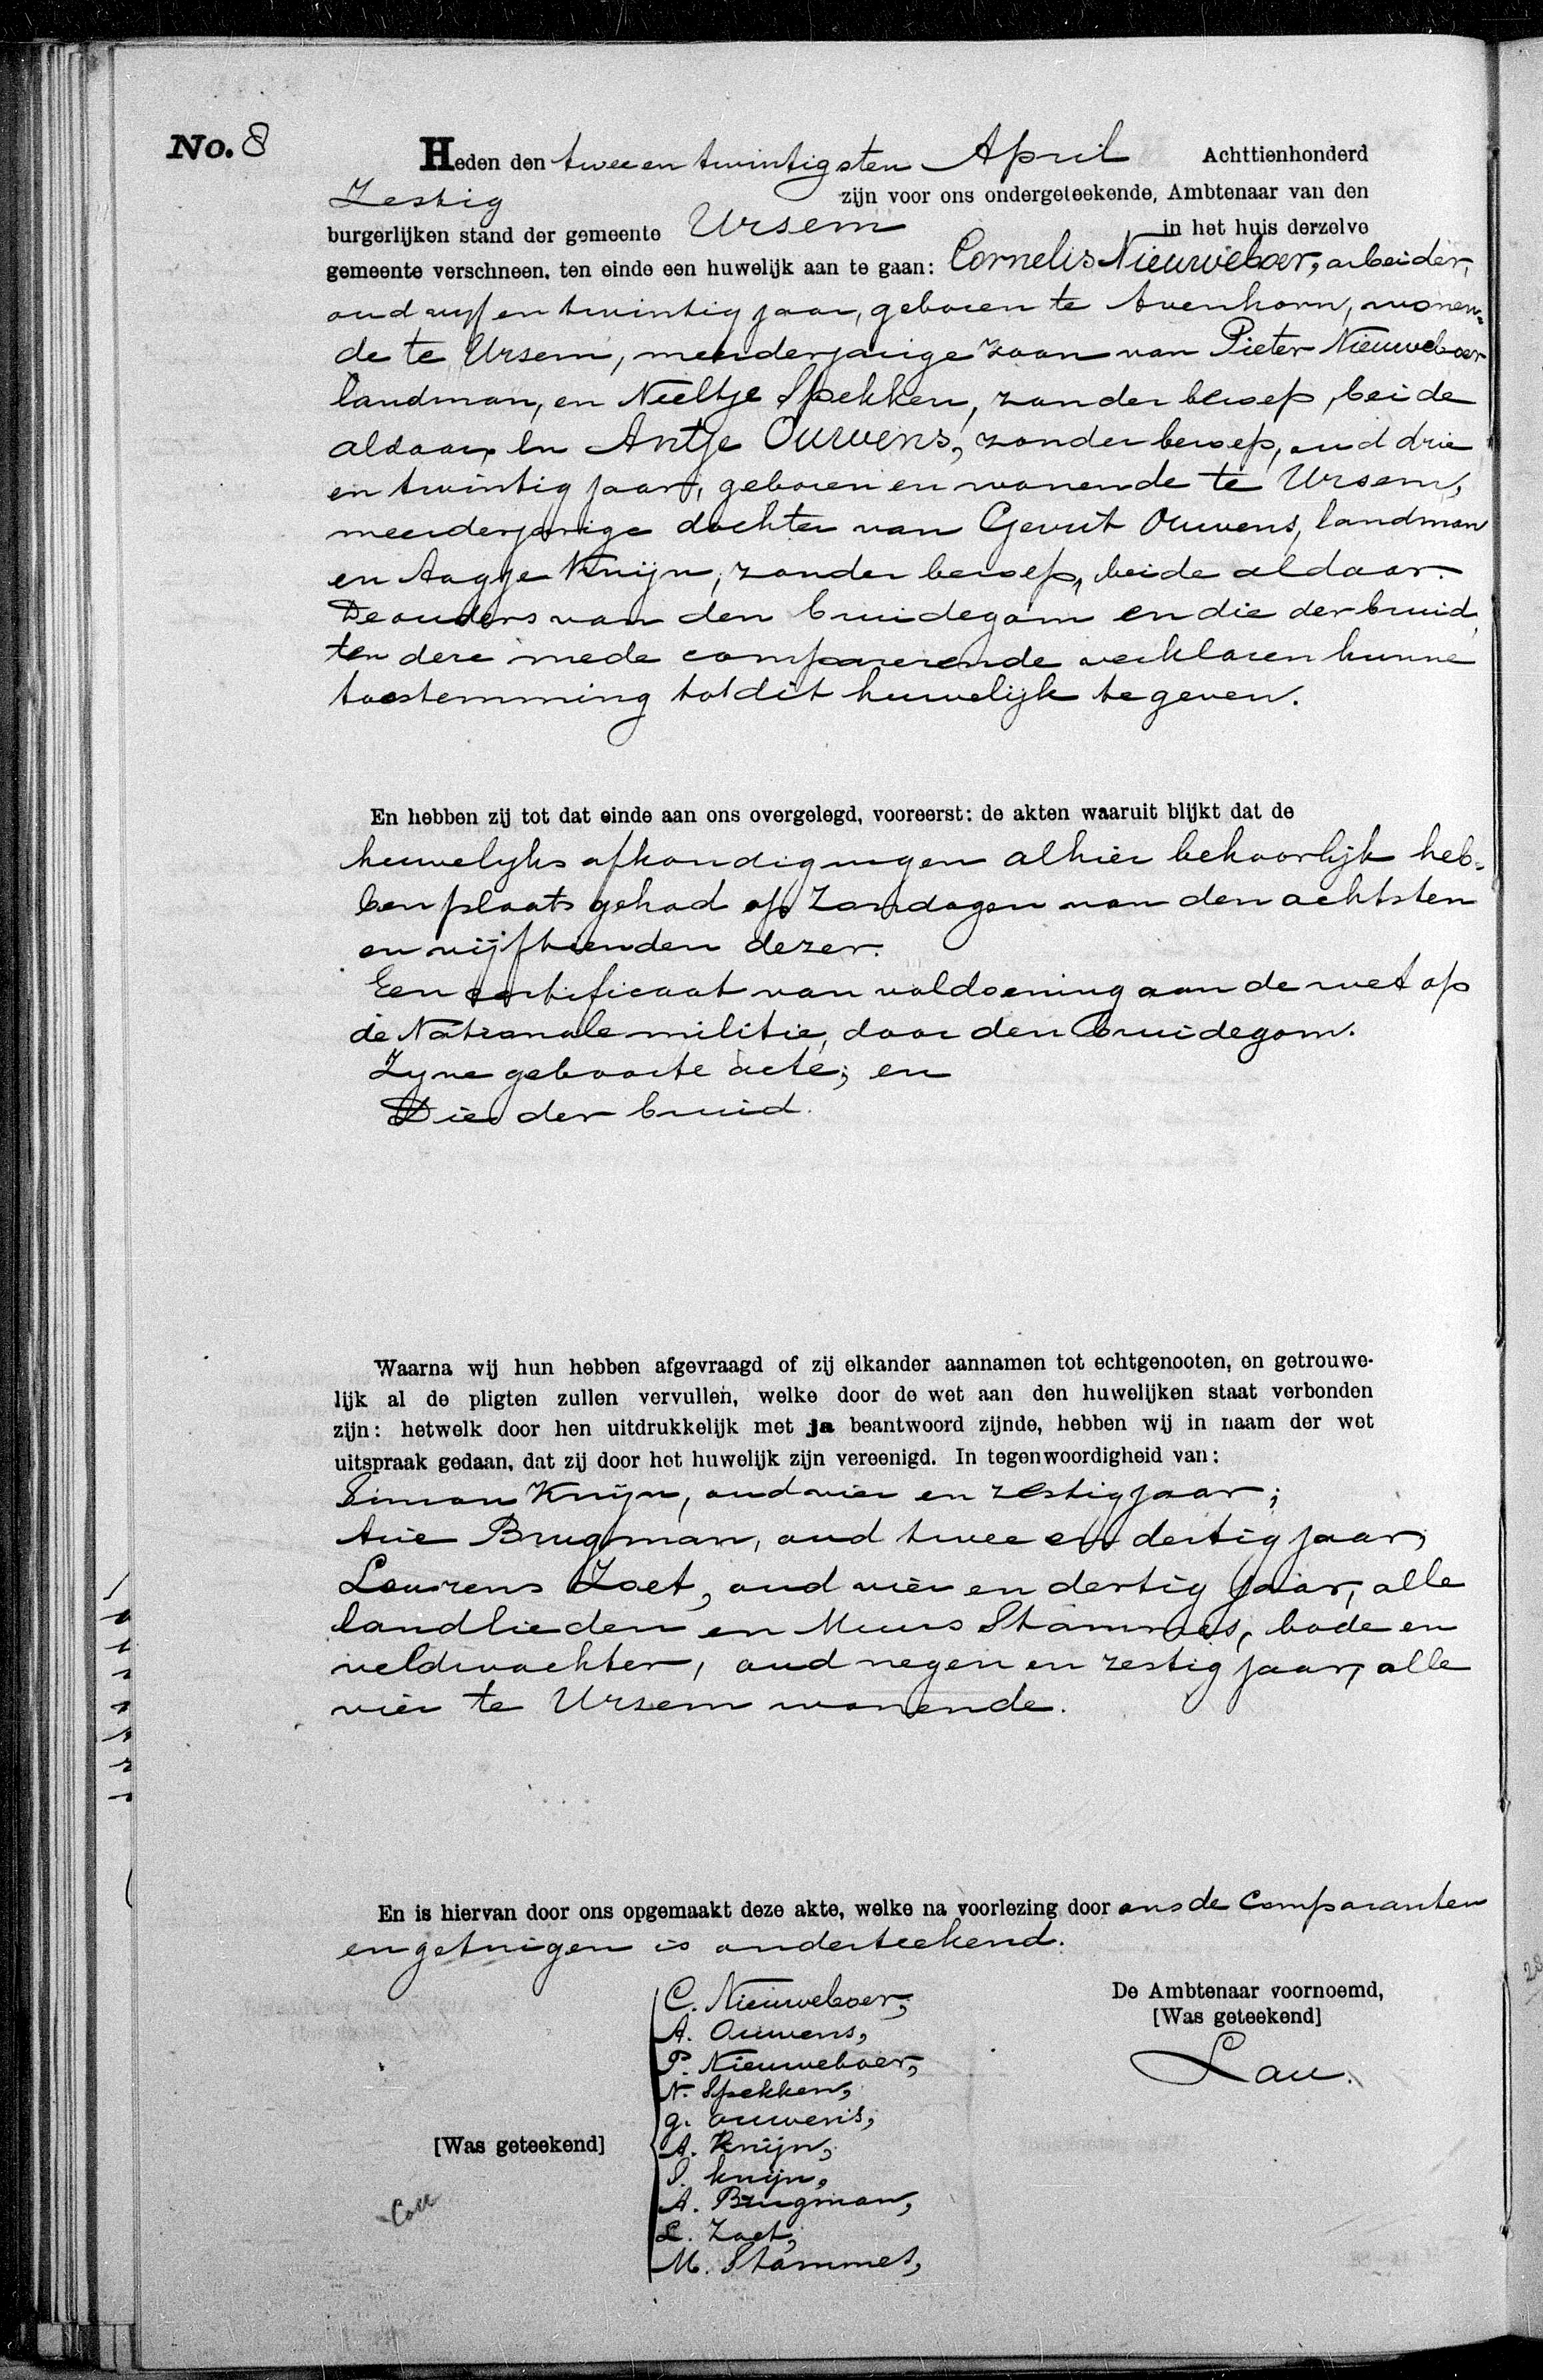 No. 8
Heden den twee en twintigsten April Achttienhonderd
Zestig zijn voor ons ondergeteekende, Ambtenaar van den
burgerlijken stand der gemeente Ursem in het huis derzelve
gemeente verschneen, ten einde een huwelijk aan te gaan: Cornelis Nieuweboer, arbeider,
oud vyf en twintig jaar, geboren te Avenhorn, wonen=
de te Ursem, meerderjarige zoon van Pieter Nieuweboer
landman, en Neeltje Spekken, zonder beroep, beide
aldaar, en Antje Ouwens, zonder beroep, oud drie
en twintig jaar, geboren en wonende te Ursem,
meerderjarige dochter van Gerrit Ouwens, landman
en Aagje Knijn, zonder beroep, beide aldaar.
De ouders van den bruidegom en die der bruid,
ten dere mede comparerende verklaren hunne
toestemming tot dit huwelijk te geven.
En hebben zij tot dat einde aan ons overgelegd, vooreerst: de akten waaruit blijkt dat de
huwelyks afkondigingen alhier behoorlijk heb=
ben plaats gehad op Zondagen van den achtsten
en vijftienden dezer.
Een certificaat van voldoening aan de wet op
de Nationale militie, door den bruidegom.
Zyne geboorte acte; en
Die der bruid.
Waarna wij hun hebben afgevraagd of zij elkander aannamen tot echtgenooten, en getrouwe-
lijk al de pligten zullen vervullen, welke door de wet aan den huwelijken staat verbonden
zijn: hetwelk door hen uitdrukkelijk met ja beantwoord zijnde, hebben wij in naam der wet
uitspraak gedaan, dat zij door het huwelijk zijn vereenigd. In tegenwoordigheid van:
Simon Knijn, oud vier en zestig jaar;
Arie Brugman, oud twee en dertig jaar,
Lourens Zoet, oud vier en dertig jaar, alle
landlieden en Muus Stammes, bode en
veldwachter, oud negen en zestig jaar, alle
vier te Ursem wonende.
En is hiervan door ons opgemaakt deze akte, welke na voorlezing door ons de Comparanten
en getuigen is onderteekend.
De Ambtenaar voornoemd,
[Was geteekend]
Lau.
[Was geteekend]
C. Nieuweboer,
A. Ouwens,
P. Nieuweboer,
N. Spekken,
g. ouwens,
A. Knijn,
S. knijn,
A. Brugman,
L. Zoet,
M. Stammes,